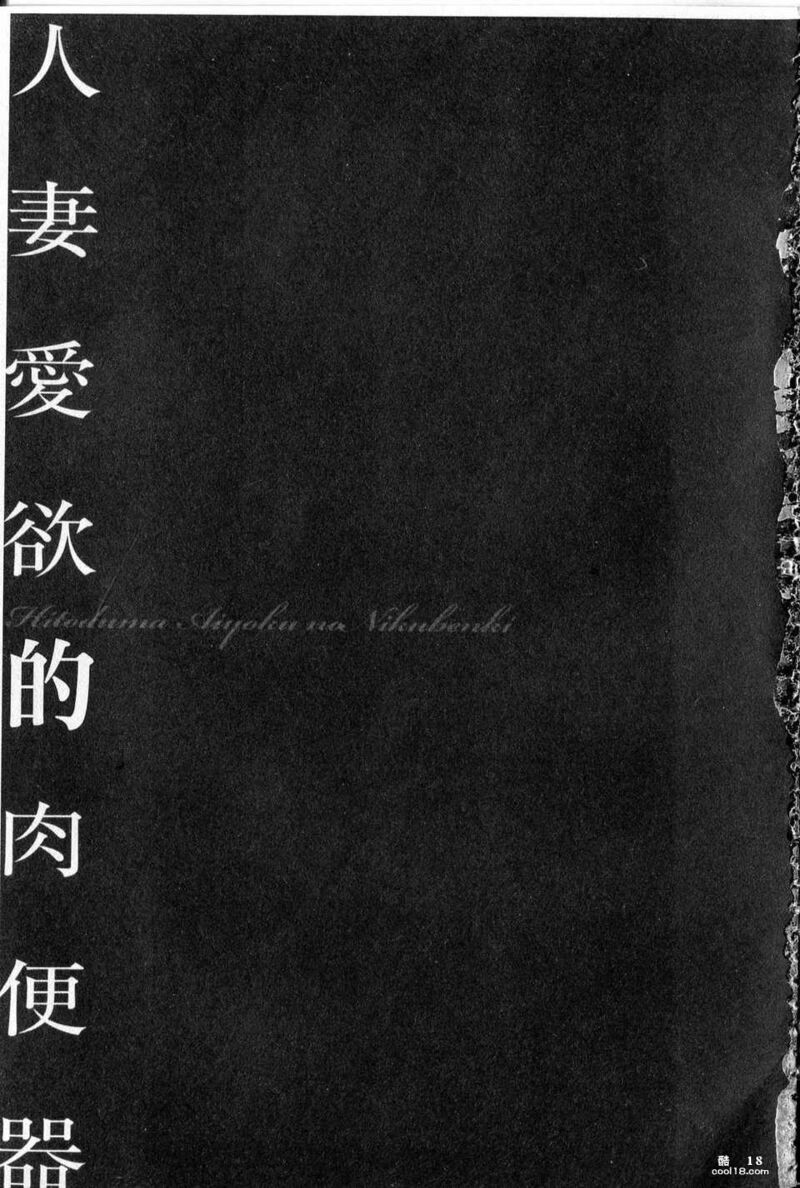 人妻愛欲的肉便器
Hitoduma Aiyoku no Nikubenki
酷 18
cool18.com